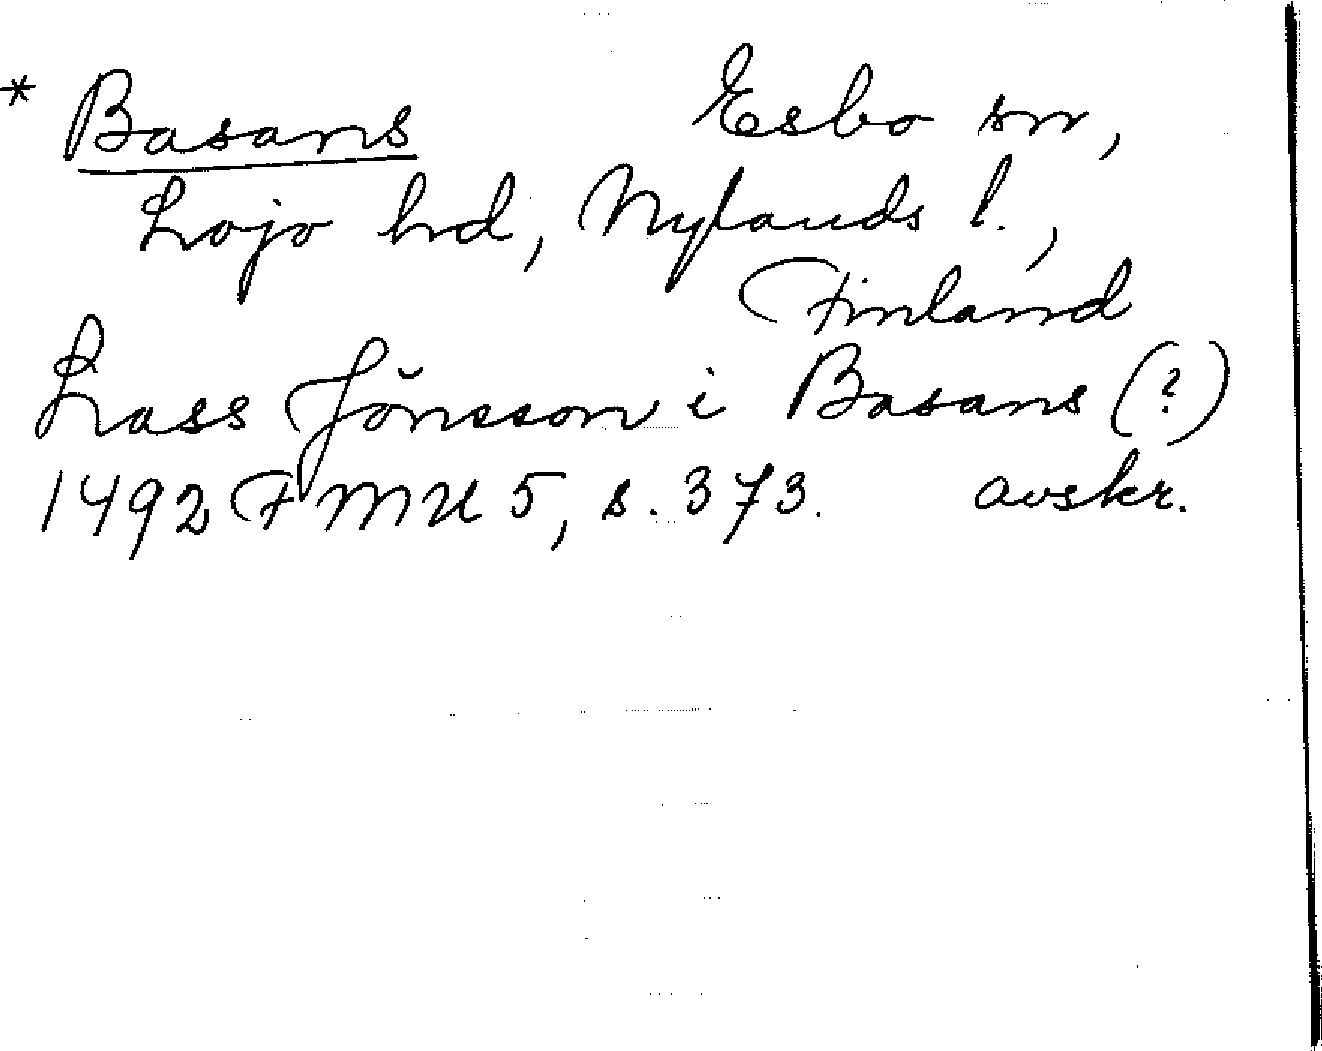 * Basans Esbo sn,
Lojo hd, Nylands l.,
Finland
Lass Jönsson i Basans (?)
1492 FMU 5, s. 373. avskr.